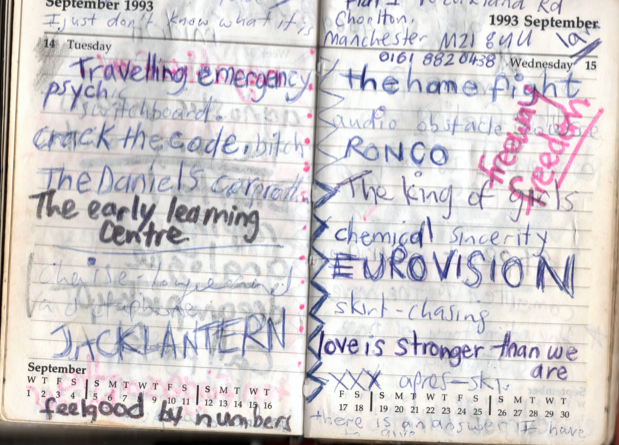 September 1993
I just don't know what it is
14 Tuesday
Travelling emergency
psych
switchboard.
crack the code, bitch
The Daniels
The early learning
Centre
JACKLANTERN
September
W T F S S M T W T F S S M T W T
2 3 4 5 6 7 8 9 10 11 12 13 14 15 16
feelgood by numbers
Rd
Chorlton.
1993 September
Manchester M21 8UU
0161 8820438
Wednesday 15
the home fight
freeway
freedom
audio obstacle
RONCO
The king of girls
chemical sincerity
EUROVISION
skirt-chasing
love is stronger than we
are
XXX apres-ski.
F S S M T W T F S S M T W T
17 18 19 20 21 22 23 24 25 26 27 28 29 30
there is an answer I have